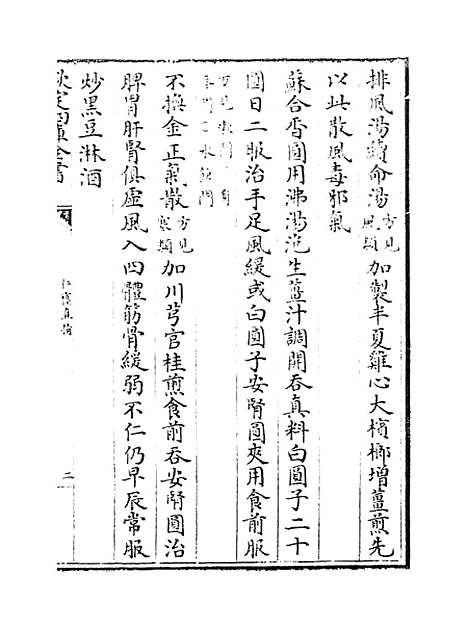 排風湯續命湯方見風類加製半夏雞心大檳榔增薑煎先
以此散風毒邪氣
蘇合香圓用沸湯泡生薑汁調開吞真料白圓子二十
圓日二服治手足風緩或白圓子安腎圓夾用食前服
不換金正氣散方見寒類加川芎官桂煎食前吞安腎圓治
脾胃肝腎俱虛風入四體筋骨緩弱不仁仍早辰常服
炒黑豆淋酒
欽定四庫全書
仁齋直指